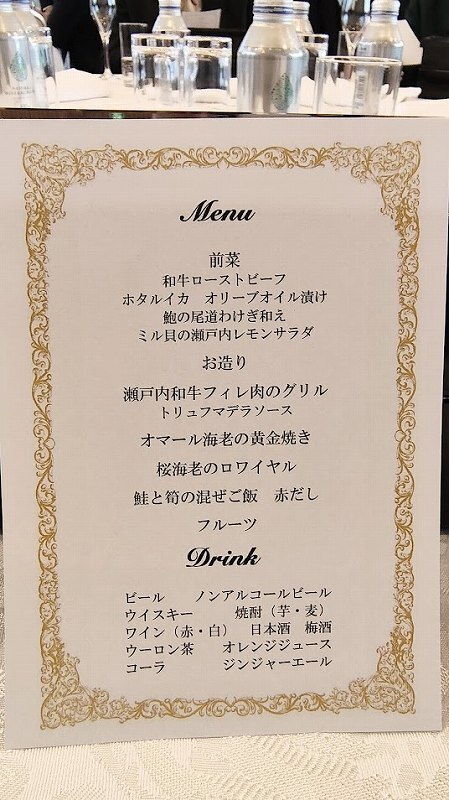 Menu
前菜
和牛ローストビーフ
ホタルイカ　オリーブオイル漬け
鮑の尾道わけぎ和え
ミル貝の瀬戸内レモンサラダ
お造り
瀬戸内和牛フィレ肉のグリル
トリュフマデラソース
オマール海老の黄金焼き
桜海老のロワイヤル
鮭と筍の混ぜご飯　赤だし
フルーツ
Drink
ビール　ノンアルコールビール
ウイスキー　焼酎（芋・麦）
ワイン（赤・白）　日本酒　梅酒
ウーロン茶　オレンジジュース
コーラ　ジンジャーエール